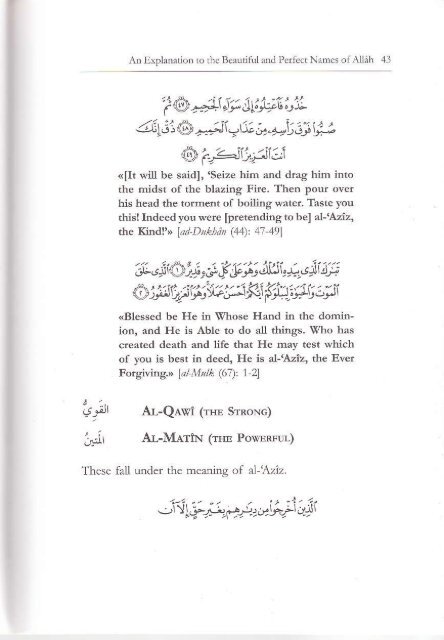 An Explanation to the Beautiful and Perfect Names of Allâh 43
خُذُوهُ فَاعْتِلُوهُ إِلَىٰ سَوَاءِ الْجَحِيمِ ﴿٤٧﴾ ثُمَّ
صُبُّوا فَوْقَ رَأْسِهِ مِنْ عَذَابِ الْحَمِيمِ ﴿٤٨﴾ ذُقْ إِنَّكَ
أَنتَ الْعَزِيزُ الْكَرِيمُ ﴿٤٩﴾
«[It will be said], ‘Seize him and drag him into
the midst of the blazing Fire. Then pour over
his head the torment of boiling water. Taste you
this! Indeed you were [pretending to be] al-‘Azîz,
the Kind!’» [ad-Dukhân (44): 47-49]
تَبَارَكَ الَّذِي بِيَدِهِ الْمُلْكُ وَهُوَ عَلَىٰ كُلِّ شَيْءٍ قَدِيرٌ ﴿١﴾ الَّذِي خَلَقَ
الْمَوْتَ وَالْحَيَاةَ لِيَبْلُوَكُمْ أَيُّكُمْ أَحْسَنُ عَمَلًا وَهُوَ الْعَزِيزُ الْغَفُورُ ﴿٢﴾
«Blessed be He in Whose Hand in the domin-
ion, and He is Able to do all things. Who has
created death and life that He may test which
of you is best in deed, He is al-‘Azîz, the Ever
Forgiving.» [al-Mulk (67): 1-2]
القَوِيُّ AL-QAWÎ (THE STRONG)
المَتِينُ AL-MATÎN (THE POWERFUL)
These fall under the meaning of al-‘Azîz.
الَّذِينَ أُخْرِجُوا مِن دِيَارِهِم بِغَيْرِ حَقٍّ إِلَّا أَن